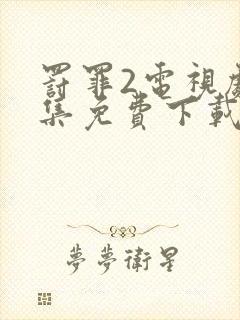 罸罪2電視劇
集免費下載
夢夢衛星